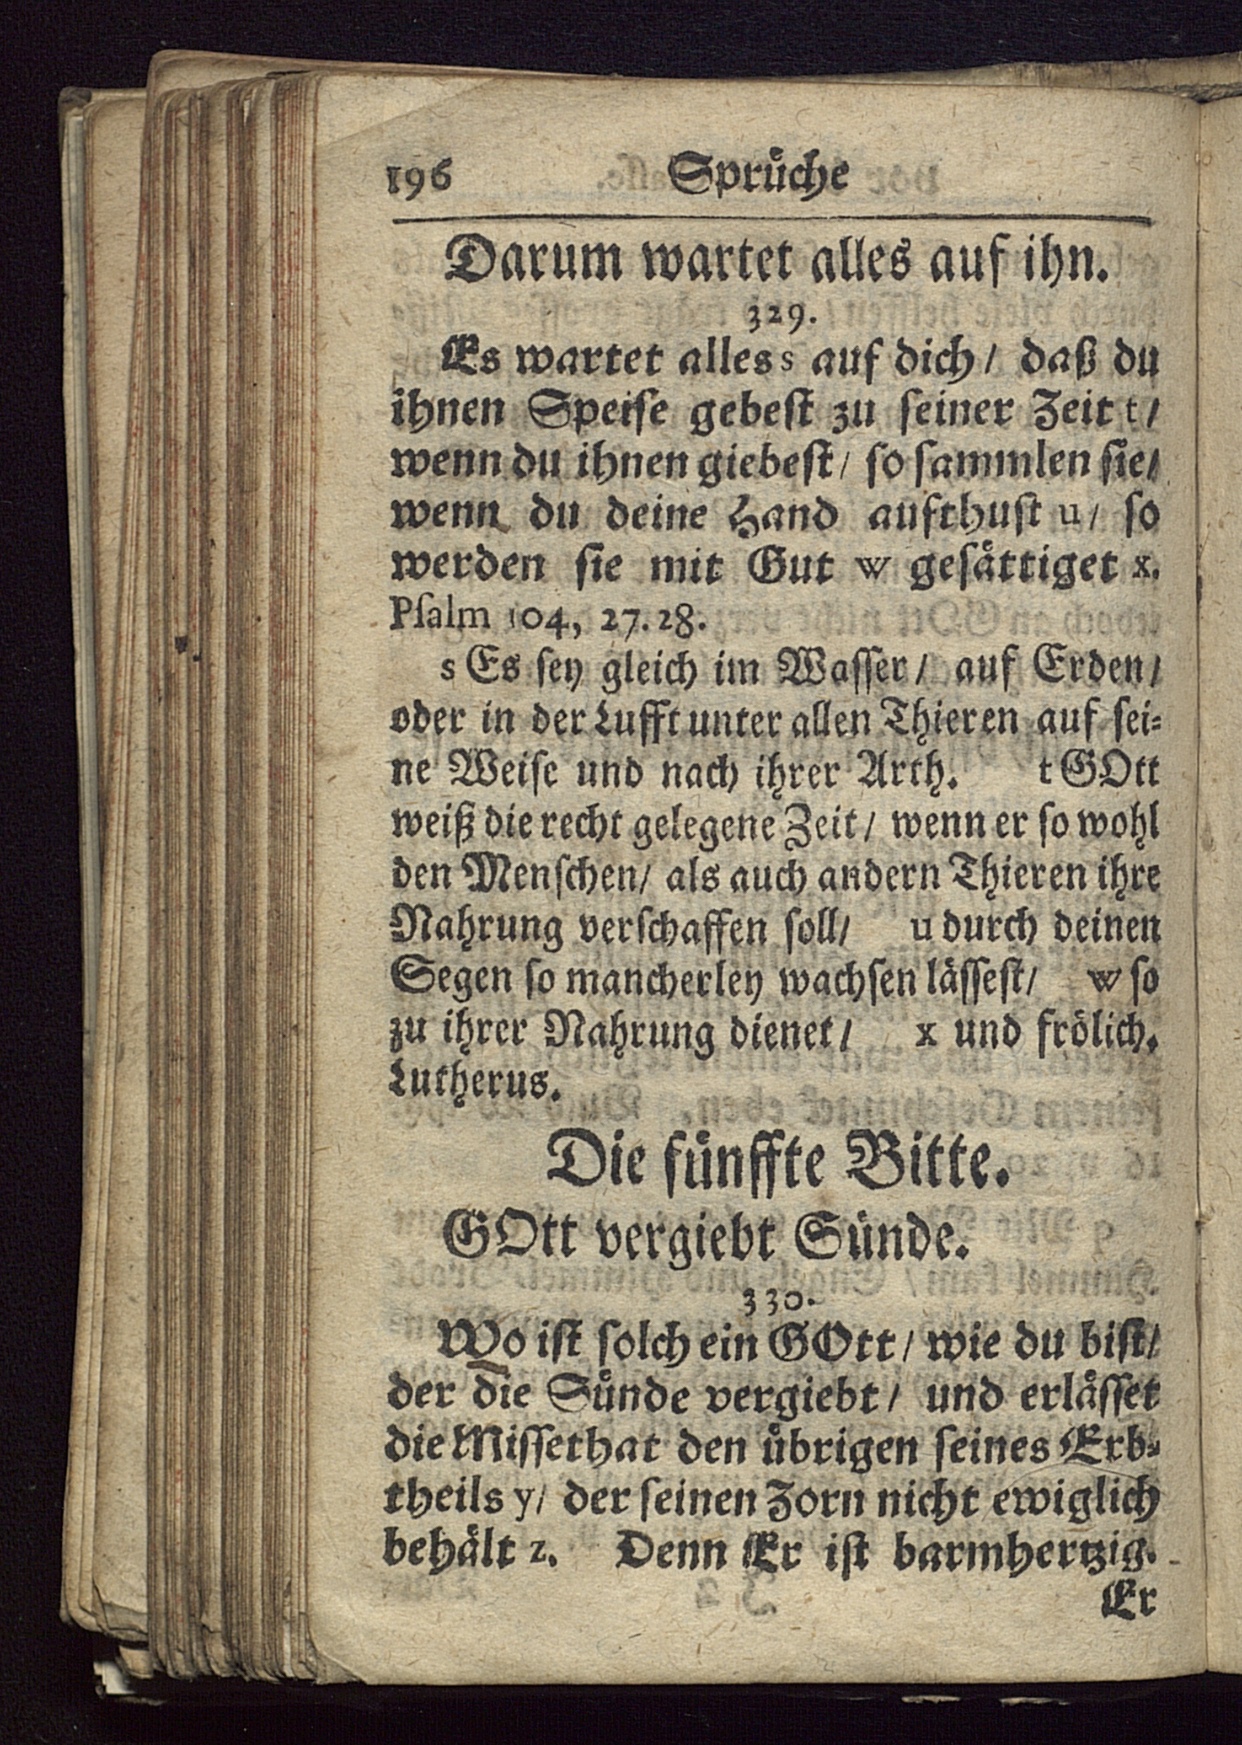 196 Sprüche
Darum wartet alles auf ihn.
329.
Es wartet alles s auf dich / daß du
ihnen Speise gebest zu seiner Zeit t /
wenn du ihnen giebest / so sammlen sie /
wenn du deine Hand aufthust u / so
werden sie mit Gut w gesättiget x.
Psalm 104, 27. 28.
s Es sey gleich im Wasser / auf Erden /
oder in der Lufft unter allen Thieren auf sei-
ne Weise und nach ihrer Arth. t GOtt
weiß die recht gelegene Zeit / wenn er so wohl
den Menschen / als auch andern Thieren ihre
Nahrung verschaffen soll / u durch deinen
Segen so mancherley wachsen lässest / w so
zu ihrer Nahrung dienet / x und frölich.
Lutherus.
Die fünffte Bitte.
GOtt vergiebt Sünde.
330.
Wo ist solch ein GOtt / wie du bist /
der die Sünde vergiebt / und erlässet
die Missethat den übrigen seines Erb-
theils y / der seinen Zorn nicht ewiglich
behält z. Denn Er ist barmhertzig.
Er